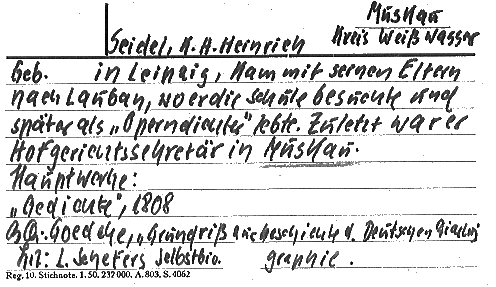 Muskau
Seidel, K. H. Heinrich Kreis Weißwasser
Geb. in Leipzig, kam mit seinen Eltern
nach Lauban, wo er die Schule besuchte und
später als „Operndichter" lebte. Zuletzt war er
Hofgerichtssekretär in Muskau.
Hauptwerke:
„Gedichte", 1808
Goedeke, „Grundriß Geschichte d. Deutschen
Lit: L. Schefers Selbstbiographie.
Reg. 10. Stichnote. 1. 50. 232 000. A. 803. S. 4062